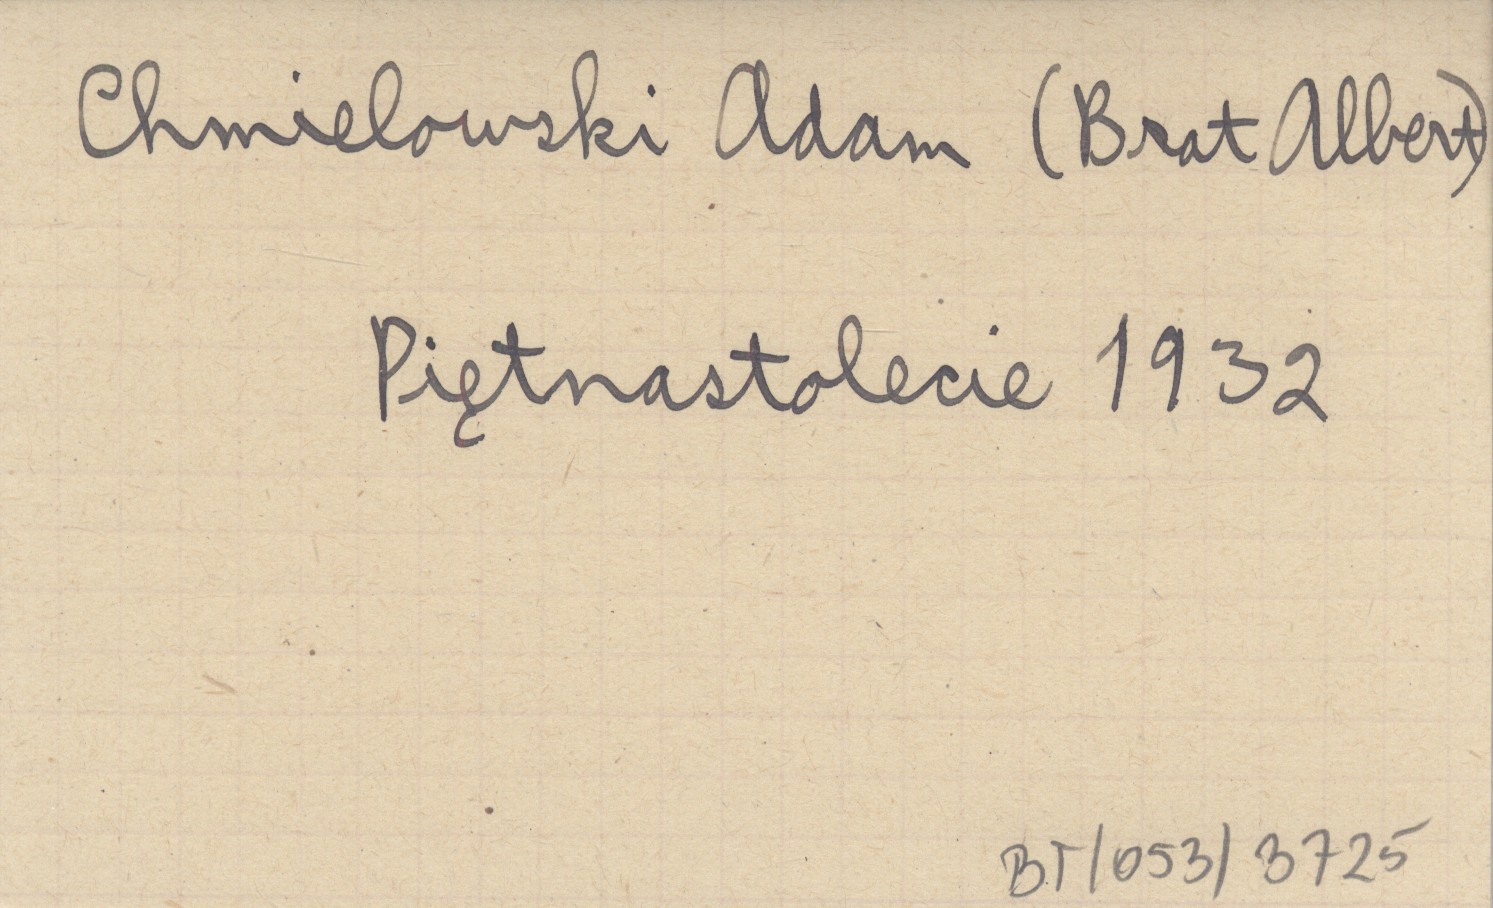 Chmielowski Adam (Brat Albert)
Piętnastolecie 1932
BT/053/3725